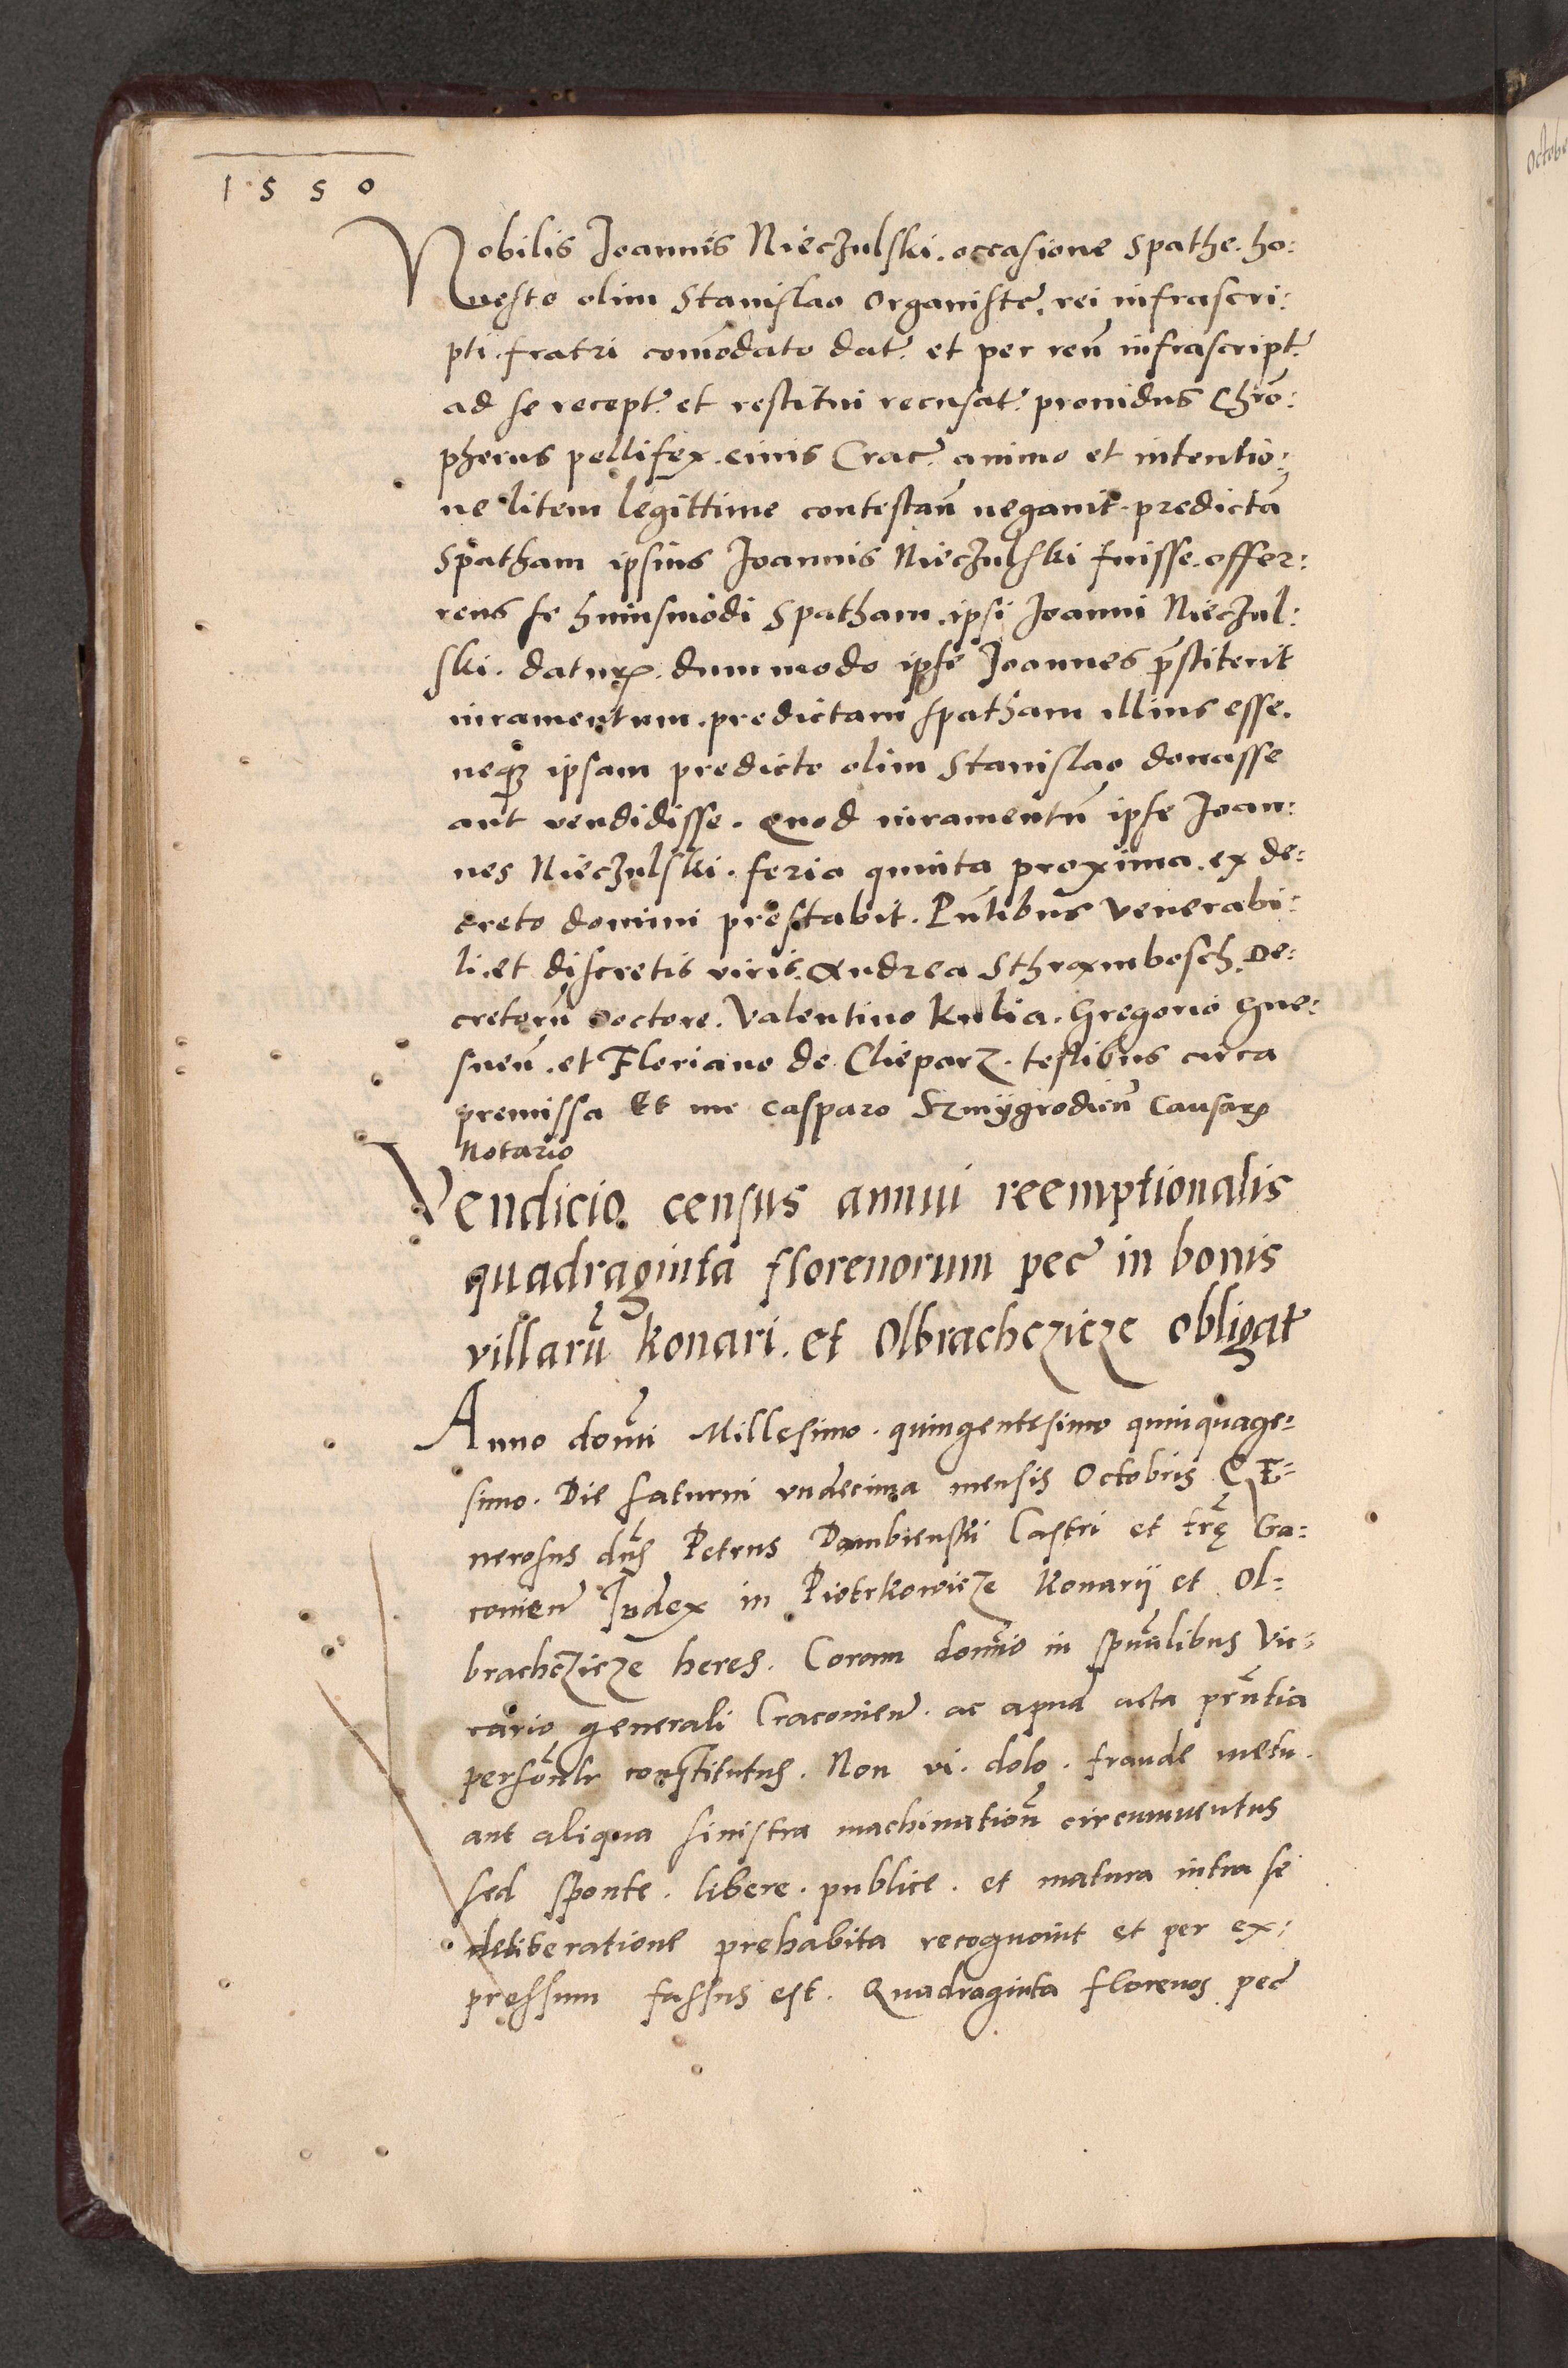 1550
Nobilis Joannis Nieczulski. occasione Spathe. ho:
nesto olim Stanislao Organiste. rei infrascri:
pti. fratri com̄odato dat. et per reū infrascript.
ad se recept. et restitui recusat. prouidus Chrō:
pherus pellifex. ciuis Crac. animo et intentio:
ne litem legittime contestan̄ negauit. predictā
Spatham ipsius Joannis Nieczulski fuisse. offer:
rens se huiusmodi Spatham. ipsi Joanni Nieczul:
ski. daturꝝ. dummodo ipse Joannes p̄stiterit
iuramentum. predictam spatham illius esse.
neqꝫ ipsam predicto olim Stanislao donasse
aut vendidisse. Quod iuramentū ipse Joan:
nes Nieczulski. feria quinta proxima. ex de:
creto domini prestabit. Pn̄tibus Venerabi:
li. et discretis viris. Andrea Sthrambosch. De:
cretorū Doctore. Valentino Kulia. Gregorio Gne:
snen̄. et Floriano de Clieparz. testibus circa
premissa Et me Casparo Szmÿgrodien̄ Causarꝝ
Notario
Vendicio census annui reemptionalis
quadraginta florenorum pec in bonis
villarū Konari. et Olbrachczicze obligat
Anno domi Millesimo. quingentesimo quinquage:
simo. Die Saturni vndecima mensis Octobris GE:
nerosus dn̄s Petrus Dambienski Castri et trę Cra:
couien̄ Judex in Piotrkowicze Konarÿ et Ol:
brachczicze heres. Coram domino in spūalibus Vic:
cario generali Cracouien̄. ac apud acta prn̄tia
persōnlr constitutus. Non vi. dolo. fraude metu.
aut aliqua sinistra machination̄ circumuentus
sed sponte. libere. publice. et matura intra se
deliberatione prehabita recognouit et per ex:
pressum fassus est. Quadraginta florenos pec